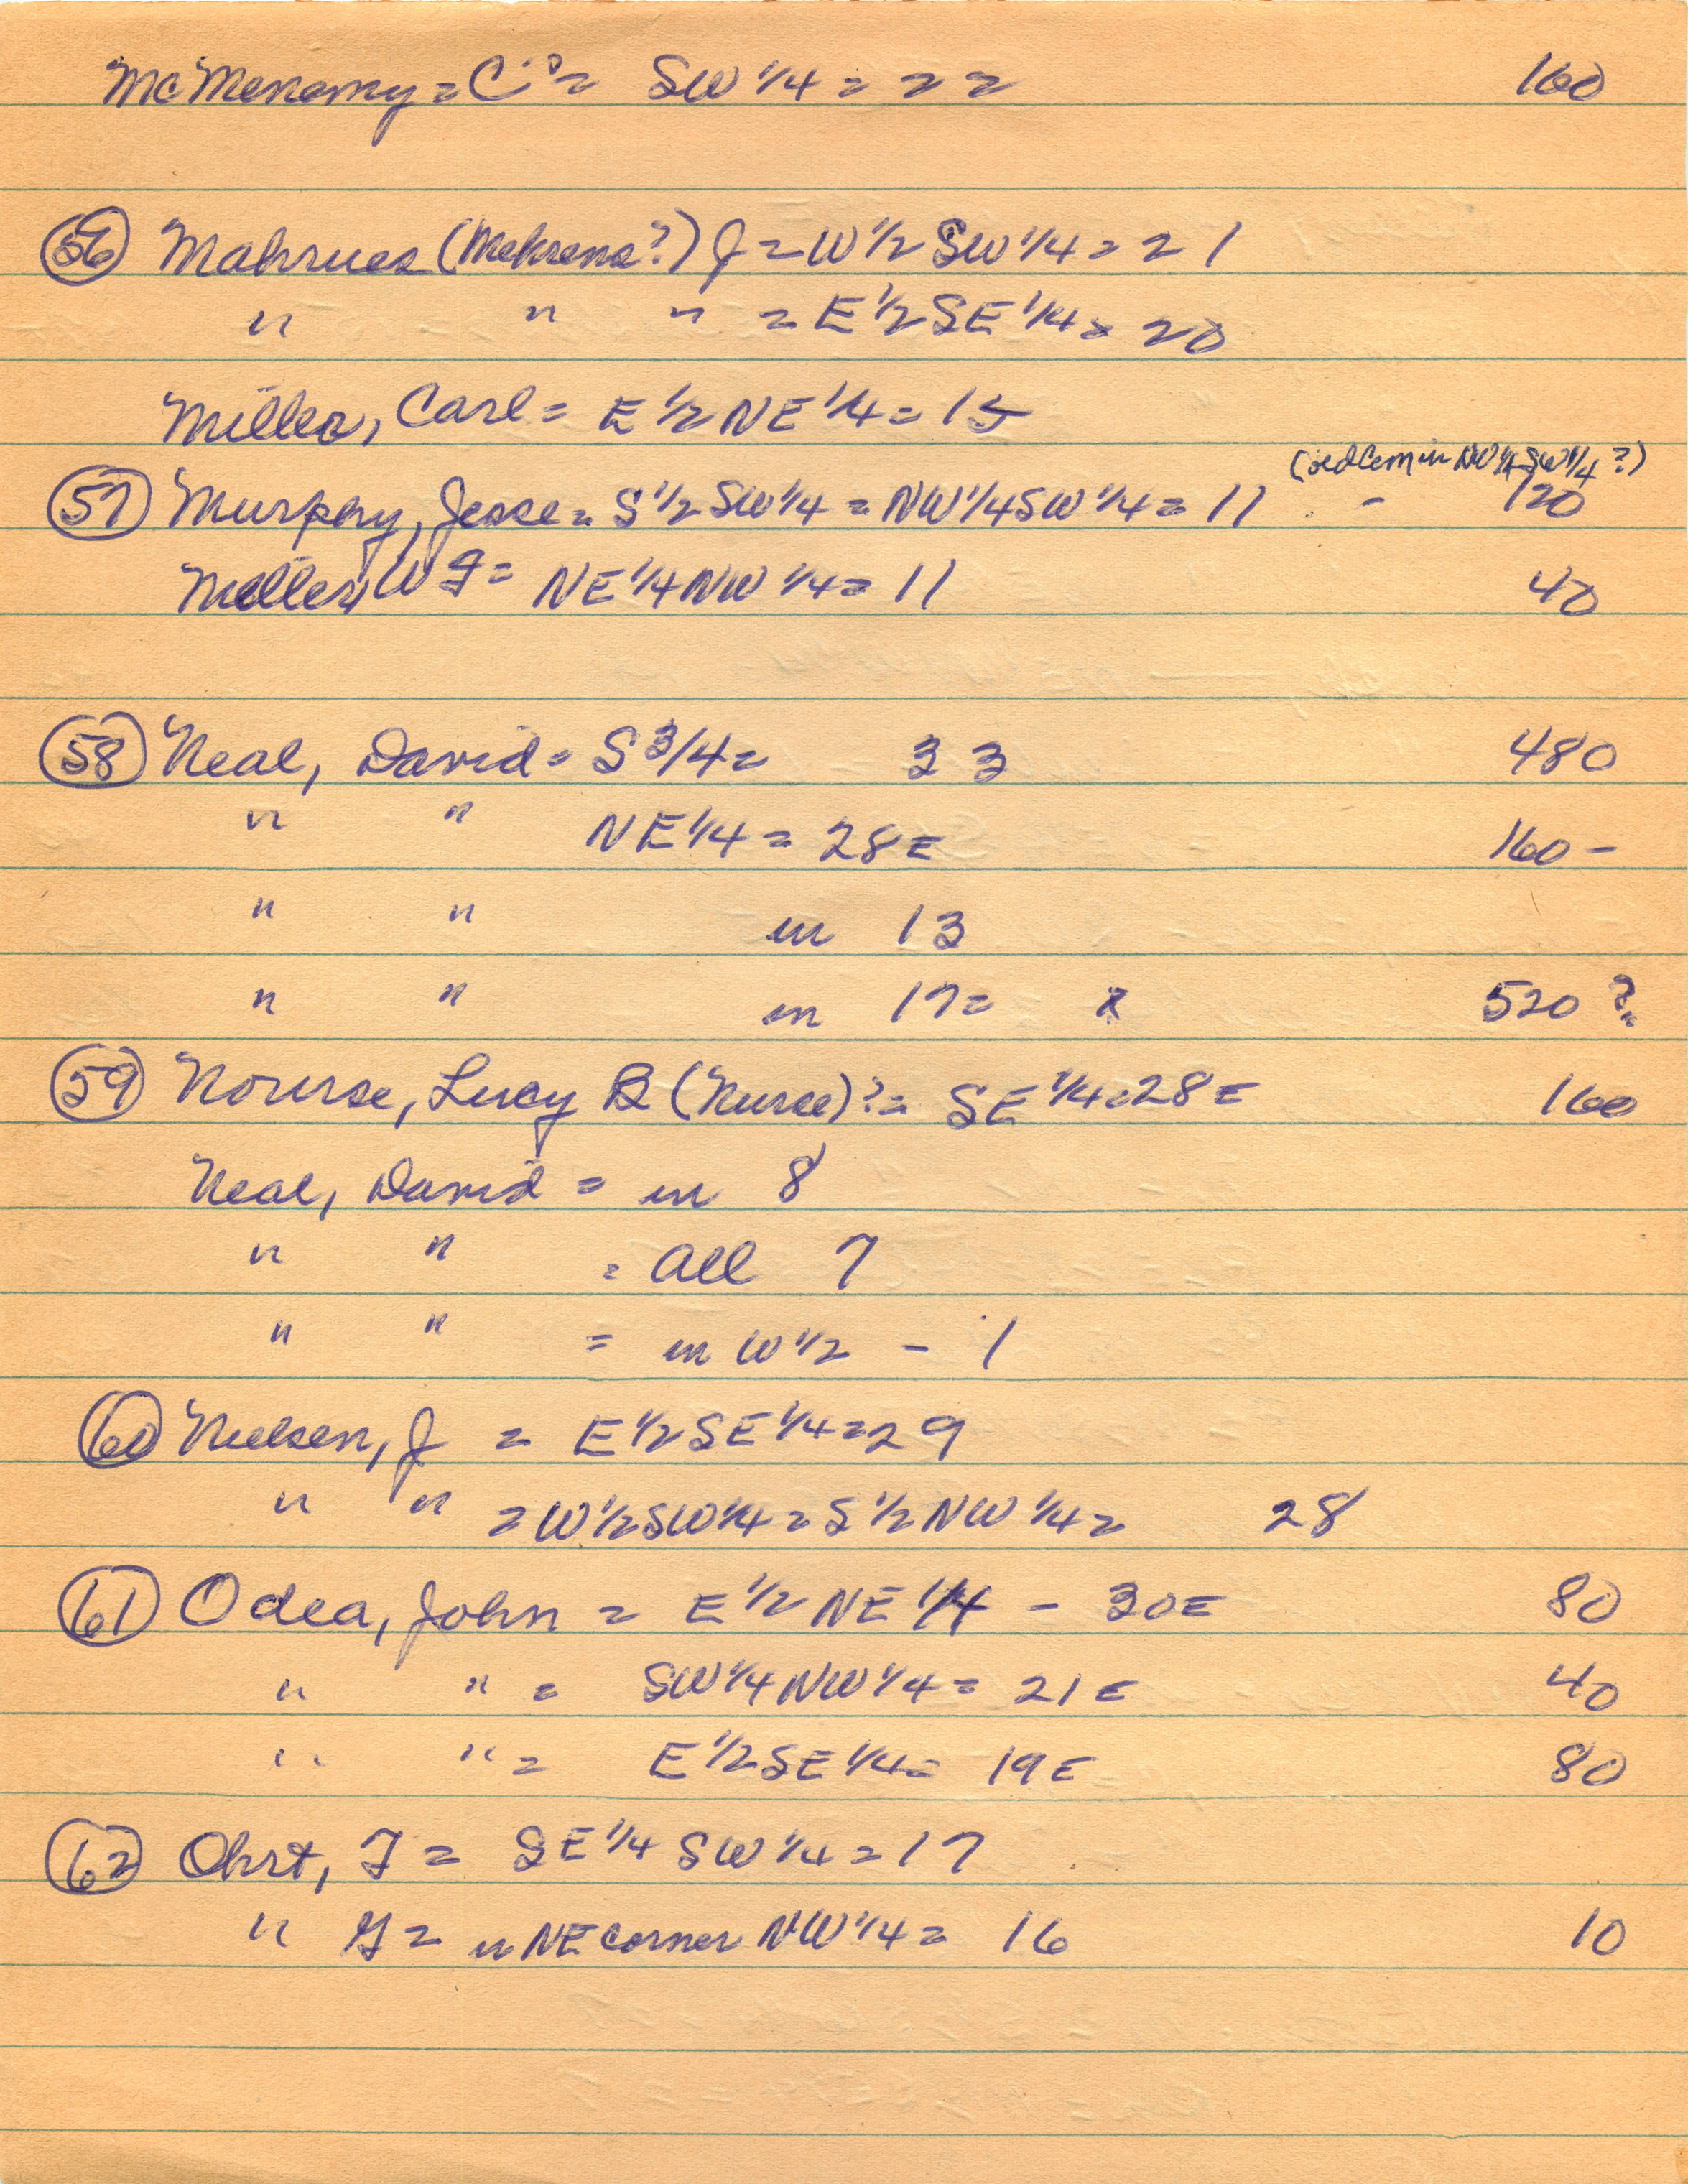 McMenomy = C = SW 1/4 = 22 160
56 Mahrues (Mehrens?) J = W 1/2 SW 1/4 = 21
" " " = E 1/2 SE 1/4 = 20
Miller, Carl = E 1/2 NE 1/4 = 15
(old Cem in NW 1/4 SW 1/4 ?)
57 Murphy, Jesse = S 1/2 SW 1/4 = NW 1/4 SW 1/4 = 11 - 120
Miller, W F = NE 1/4 NW 1/4 = 11 40
58 Neal, David = S 3/4 = 33 480
" " NE 1/4 = 28 E 160 -
" " in 13
" " in 17 = 520 ?
59 Nourse, Lucy B (Nurse)? = SE 1/4 = 28 E 160
Neal, David = in 8
" " = all 7
" " = in W 1/2 - 1
60 Nielsen, J = E 1/2 SE 1/4 = 29
" " = W 1/2 SW 1/4 = S 1/2 NW 1/4 = 28
61 Odea, John = E 1/2 NE 1/4 - 30 E 80
" " = SW 1/4 NW 1/4 = 21 E 40
" " = E 1/2 SE 1/4 = 19 E 80
62 Ohrt, J = SE 1/4 SW 1/4 = 17
" G = in NE corner NW 1/4 = 16 10